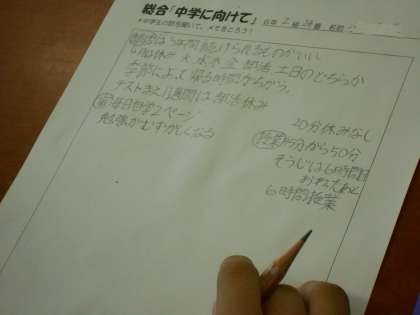 総合「中学に向けて」 6年2組28番 名前
*中学生の話を聞いて、メモをとろう!
部活は3年間続けられるものがいい
休み 火 水 木 金 部活 土日のどちらか
季節によって帰る時間がちがう。
テストまえ1週間は部活休み
毎日自学2ページ
勉強がむずかしくなる
20分休みなし
授業45分から50分
そうじは6時間目
おわったあと
6時間授業